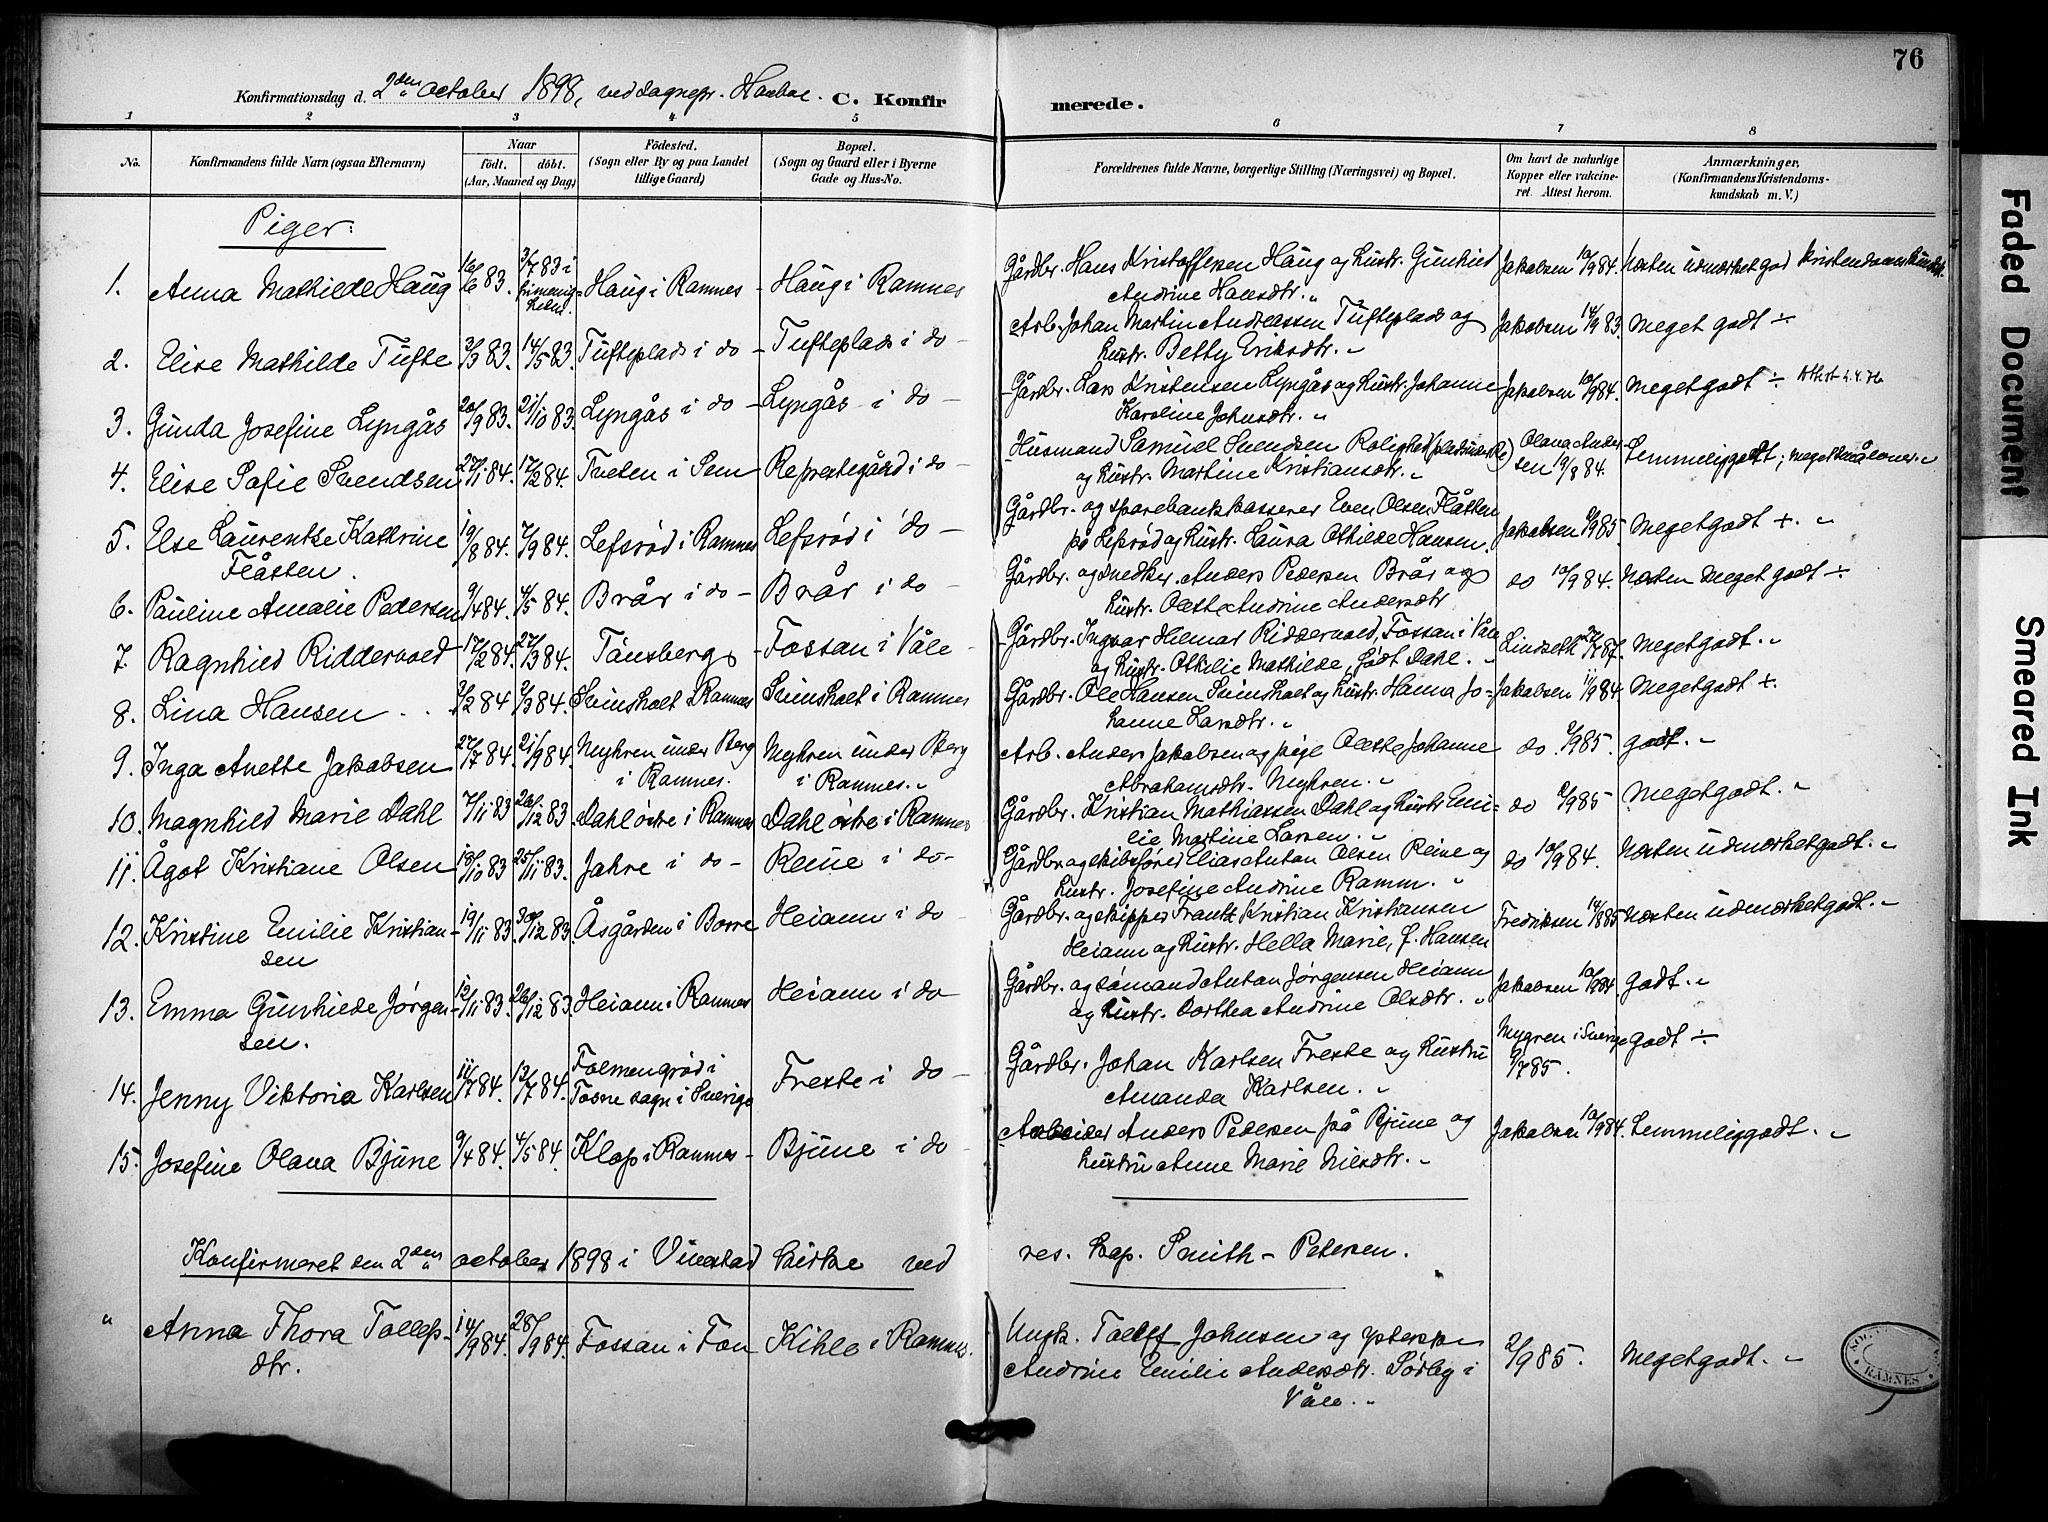 76
Konfirmationsdag d. 2den october 1898, ved sognepr. C. Konfirmerede.
1 2 3 4 5 6 7 8
No. Konfirmandens fulde Navn (ogsaa Efternavn) Naar født. døbt. (Aar, Maaned og Dag) Fødested. (Sogn eller By og paa Landet tillige Gaard) Bopæl. (Sogn og Gaard eller i Byerne Gade og Hus-No. Forældrenes fulde Navne, borgerlige Stilling (Næringsvei) og Bopæl. Om havt de naturlige Kopper eller vakcineret. Attest herom. Anmærkninger, (Konfirmandens Kristendomskundskab m. V.)
Piger:
1. Anna Mathilde Haug 10/6 83. 3/7 83 i Haug i Ramnes Haug i Ramnes Gårdbr. Hans Kristoffersen Haug og hustr. Gunhild Jakobsen 10/9 84. Næsten udmærket god kristendomskundsk.
Andrine Hansdtr. „
2. Elise Mathilde Tufte 3/3 83. 14/5 83. Tufteplads i do - Tufteplads i do - Arb. Johan Martin Andreassen Tufteplads og Jakobsen 14/9 83. Meget godt ÷
hustr. Betty Eriksdtr. „
3. Gunda Josefine Lyngås 20/9 83. 21/10 83. Lyngås i do - Lyngås i do - Gårdbr. Lars Kristensen Lyngås og hustr. Johanne Jakobsen 10/9 84. Megetgodt ÷
Karoline Johnsdtr. „
4. Elise Sofie Svendsen 27/1 84. 17/2 84. Tveten i Sem Res. prestegård i do - Husmand Samuel Svendsen Rolighed og hustr. Martine Kristiansdtr. „ Olava Andersen 19/8 84. Temmeliggodt;
5. Else Laurentze Kathrine Flåtten. 19/8 84. 7/9 84. Lefsrød i Ramnes Lefsrød i do - Gårdbr. og sparebankkasserer Even Olsen Flåtten
på Lefsrød og hustr. Laura Othilde Hansen. Jakobsen 9/9 85. Megetgodt +. „
6. Pauline Amalie Pedersen 9/4 84. 4/5 84. Brår i do - Brår i do - Gårdbr. og snedker. Anders Pedersen Brår og do 10/9 84. Næsten Meget godt ÷
hustr. Oleste Andrine Andersdtr
7. Ragnhild Riddervold 17/2 84. 27/3 84. Tønsberg Fossan i Våle - Gårdbr. Ingvar Hilmar Riddervold, Fossan i Våle Lindseth 27/7 87. Megetgodt. „
og hustr. Othilie Mathilde, født Dahl. „
8. Lina Hansen 3/2 84 2/3 84. Svinsholt i Ramnes Svinsholt i Ramnes Gårdbr. Ole Hansen Svinsholt og hustr. Hanna Jo- Jakobsen 11/9 84. Megetgodt +.
hanne Larsdtr. „
9. Inga Anette Jakobsen 27/7 84. 21/9 84. Myhren under Berg i Ramnes. Myhren under Berg i Ramnes. „ Arb. Anders Jakobsen og pige Oleste Johanne do 9/9 85. godt. „
Abrahamsdtr. Myhren. „
10. Magnhild Marie Dahl 7/11 83 26/12 83 Dahl østre i Ramnes Dahl østre i Ramnes Gårdbr. Kristian Mathiassen Dahl og hustr Emi- do 9/9 85 Megetgodt. „
lie Martine Larsen. „
11. Ågot Kristiane Olsen 13/10 83 25/11 83. Jahre i do - Reine i do - Gårdbr. og skibsfører Elias Antan Olsen Reine og do 10/9 84. Næsten udmærketgodt. „
hustr. Josefine Andrine Ramm. „
12. Kristine Emilie Kristian- 19/11 83. 30/12 83 Åsgården i Borre Heiann i do - Gårdbr. og skipper Frantz Kristian Kristiansen Fredriksen 14/8 85 Næsten udmærketgodt. „
sen Heiann og hustr. Hella Marie, f. Hansen
13. Emma Gunhilde Jørgen- 12/11 83. 26/12 83. Heiann i Ramnes Heiann i do - Gårdbr. og sømand Antan Jørgensen Heiann Jakobsen 10/9 84 godt. „
sen. og hustr. Dorthea Andrine Olsdtr. „
14. Jenny Viktoria Karlsen 11/7 84. 13/7 84. Folmengrød i Tosne sogn i Sverige Freste i do - Gårdbr. Johan Karlsen Freste og hustru Mygren i Sverige 9/7 85. godt ÷
Amanda Karlsen. „
15. Josefine Olava Bjune 9/4 84. 4/5 84. Klop i Ramnes - Bjune i do - Arbeider Anders Pedersen på Bjune og Jakobsen 10/9 84. Temmeliggodt. „
hustru Anne Marie Nilsdtr. „
Konfirmeret den 2den october 1898 i Vivestad kirke ved res. kap. Smith-Petersen.
„ Anna Thora Tollefs- 14/9 84. 28/9 84. Fossan i Fon Kihle i Ramnes. Ungk. Tollef Johnsen og 2/9 85. Megetgodt. „
dtr. Andrine Emilie Andersdtr. Sørby i
Våle. „
RAMNES
Faded Document
Smeared Ink